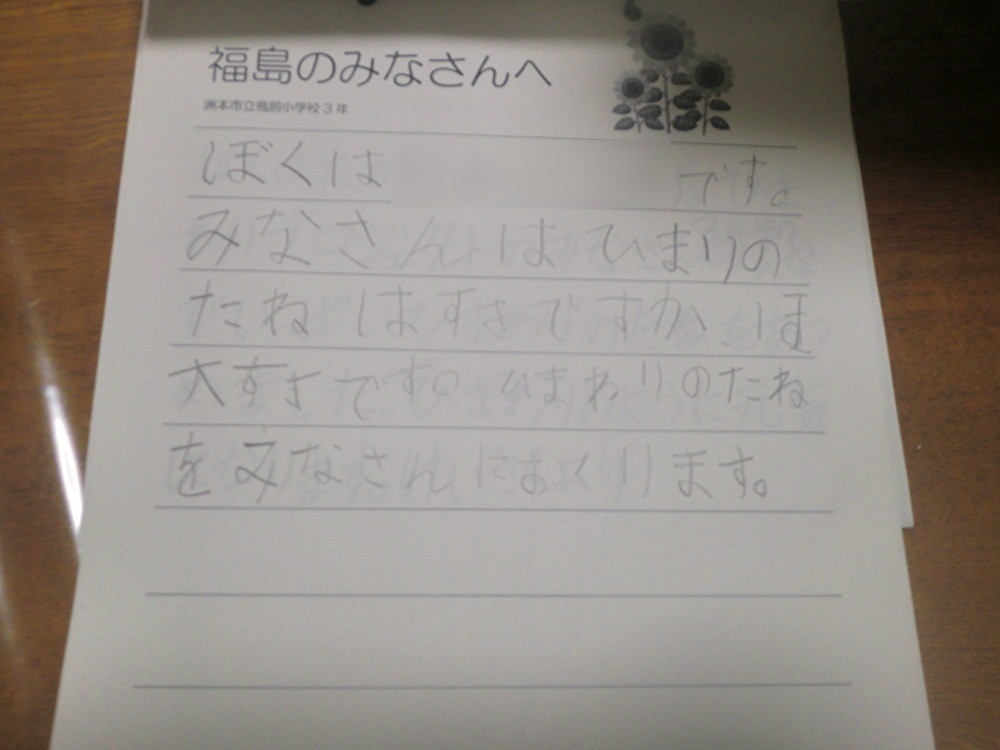 福島のみなさんへ
洲本市立鳥飼小学校3年
ぼくは です。
みなさんはひまりの
たねはすきですか、ほ
大すきです。ひまわりのたね
をみなさんにおくります。